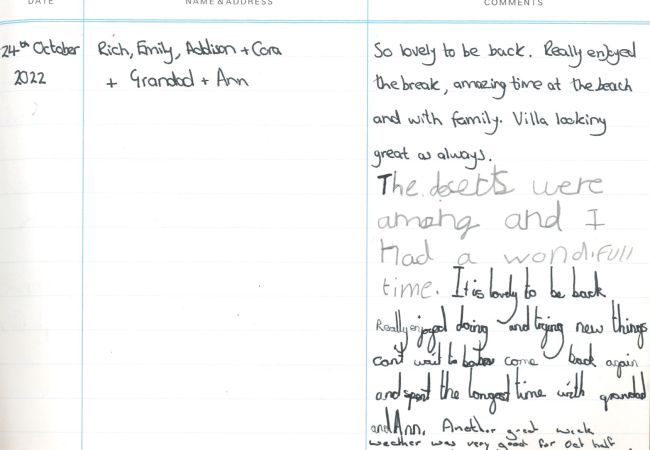 DATE NAME & ADDRESS COMMENTS
24th October
2022
Rich, Emily, Addison + Cora
+ Grandad + Ann
So lovely to be back. Really enjoyed
the break, amazing time at the beach
and with family. Villa looking
great as always.
The deserts were
amazing and I
Had a wondifull
time. It is lovely to be back
Really enjoyed doing and trying new things
can't wait to come back again
and spent the longest time with grandad
and Ann. Another great week
weather was very good for Oct half